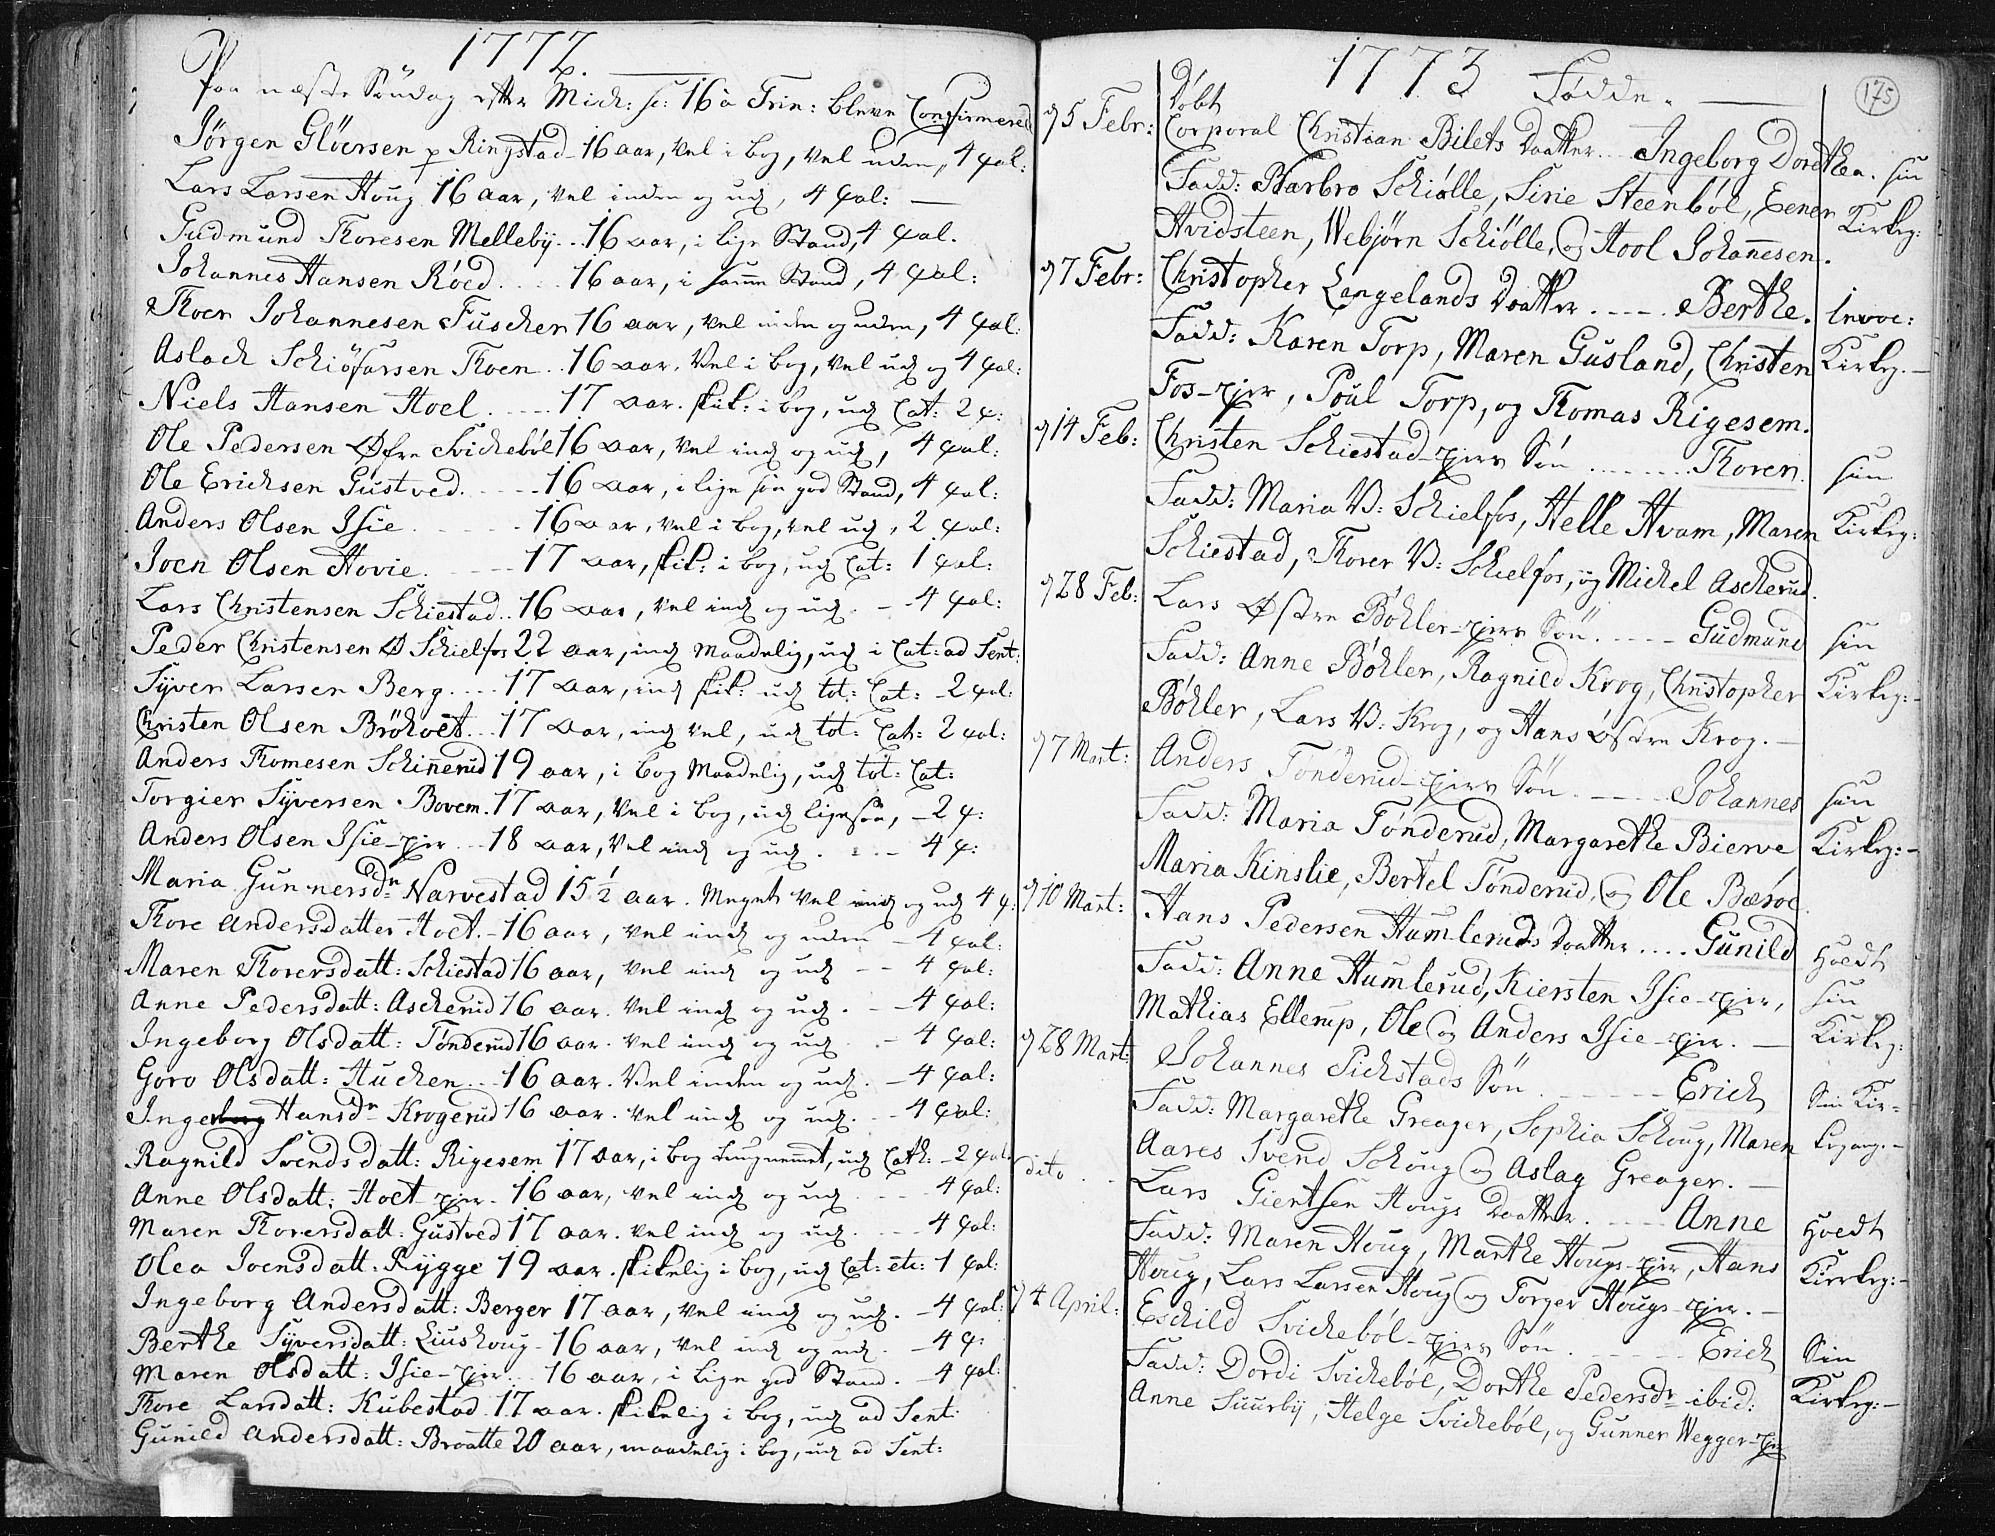 1772.
Paa næste Söndag efter Mich: sc: 16 à Trin: bleve Confirmered
Jörgen Glöersen p Ringstad 16 aar, vel i bog, vel uden, 4 qal:
Lars Larsen Houg 16 aar, vel inden og ud, 4 qal:
Gudmund Thoresen Melleby... 16 aar, i lige Stand, 4 qal.
Johannes Hansen Röed.... 16 aar, i samme Stand, 4 qal:
Thoer Johannesen Fuscher 16 aar, vel inden og uden, 4 qal:
Aslach Schiöfarsen Thoen.. 16 aar. Vel i bog, vel ud og 4 qal:
Niels Hansen Hoel.... 17 aar. skik: i bog, ud Cat: 2 q:
Ole Pedersen Øfre Svickeböl 16 aar, vel ind og ud, 4 qal:
Ole Erichsen Gustved..... 16 aar, i lige saa god Stand, 4 qal:
Anders Olsen Isie..... 16 aar, vel i bog, vel ud, 2 qal:
Joen Olsen Hovie.... 17 aar, skik: i bog, ud Cat: 1 qal:
Lars Christensen Schiestad.. 16 aar, vel ind og ud. - 4 qal:
Peder Christensen Ø Schielfos 22 aar, ind Maadelig, ud i Cat: ad Sent:
Syver Larsen Berg.... 17 aar, ind skik: ud tot: Cat: - 2 qal:
Christen Olsen Bröhoet... 17 aar, ind vel, ud tot: Cat: 2 qal:
Anders Thomesen Schinnerud 19 aar, i bog Maadelig, ud tot: Cat:
Torgier Syversen Bovem. 17 aar, vel i bog, ud ligesaa, - 2 q:
Anders Olsen Isie-ejer... 18 aar, vel ind og ud. .. - 4 q:
Maria Gunnersdr Narvestad 15 1/2 aar. Meget vel ind og ud 4 q:
Thore Andersdatter Hoet.- 16 aar, vel ind og uden - 4 qal:
Maren Thorersdatt: Schiestad 16 aar, vel ind og ud -- 4 qal:
Anne Pedersdatt: Ascherud 16 aar. vel ind og ud. - 4 qal:
Ingeborg Olsdatt: Tönderud 16 aar. vel ind og ud. - 4 qal:
Goro Olsdatt: Huchen.. 16 aar. Vel inden og ud. - 4 qal:
Ingeborg Hansdr Krogerud 16 aar. vel ind og ud. - 4 qal:
Ragnild Svendsdatt: Rigesem 17 aar, i bog, ud Cath: - 2 qal:
Anne Olsdatt: Hoet-ejer - 16 aar, vel ind og ud ... 4 qal:
Maren Thorersdatt: Gustved 17 aar. vel ind og ud. ... 4 qal:
Olea Joensdatt: Rygge 19 aar. skikelig i bog, ud Cat: etc: 1 qal:
Ingeborg Andersdatt: Berger 17 aar, vel ind og ud. - 4 qal:
Berthe Syversdatt: Liushoug - 16 aar, vel ind og ud. - 4 q:
Maren Olsdatt: Isie-ejer... 16 aar, i lige god Stand. - 4 qal:
Thore Larsdatt: Kubestad 17 aar. skikelig i bog, ud ad Sent:
Gunild Andersdatt: Broatte 20 aar, maadelig i bog, ud ad Sent:
1773 Födde.
175
Döbt
d 5 Febr: Corporal Christian Bilets Daatter... Ingeborg Dorethea. sin
Fadd: Barbro Schiölle, Sirie Steenböl, Eener Kirkeg:
Hvidsteen, Webjörn Schiölle, og Hool Johannesen.
d 7 Febr: Christopher Langelands Daatter..... Berthe. Invoc:
Fadd: Karen Torp, Maren Gusland, Christen Kirkeg. -
Fos-ejer, Poul Torp, og Thomas Rigesem.
d 14 Feb: Christen Schiestad-ejers Sön ....... Thoren. sin
Fadd: Maria V: Schielfos, Helle Hvam, Maren Kirkeg:
Schiestad, Thorer V: Schielfos, og Michel Ascherud.
d 28 Feb: Lars Østre Böhler-ejers Sön. .... Gudmund sin
Fadd: Anne Böhler, Ragnild Krog, Christopher Kirkeg: -
Böhler, Lars V: Krog, og Hans Østre Krog. -
d 7 Mart: Anders Tönderud-ejers Sön. ..... Johannes sin
Fadd: Maria Tönderud, Margarethe Bierve Kirkeg: -
Maria Kinslie, Bertel Tönderud, og Ole Bæröe.
d 10 Mart: Hans Pedersen Humleruds Daatter.... Gunild Hoedt
Fadd: Anne Humlerud, Kiersten Isie-ejer, sin
Mathias Ellerup, Ole og Anders Isie-ejer. - Kirkeg:
d 28 Mart: Johannes Sickstads Sön ...... Erich Sin Kir-
Fadd: Margarethe Greager, Sophia Schoug, Maren kegang. -
Aares Svend Schoug og Aslag Greager. -
dito . . Lars Giertsen Hougs Daatter. .... Anne Hoedt
Fadd: Maren Houg, Marthe Hougs-ejer, Hans Kirkeg: -
Houg, Lars Larsen Houg og Torger Hougs-ejer. -
d 4 April: Eschild Svickeböl-ejers Sön. ...... Erich Sin
Fadd: Dordi Svickeböl, Dorthe Pedersdr ibid: Kirkeg: -
Anne Suurby, Helge Svickeböl, og Gunner Wegger-ejer